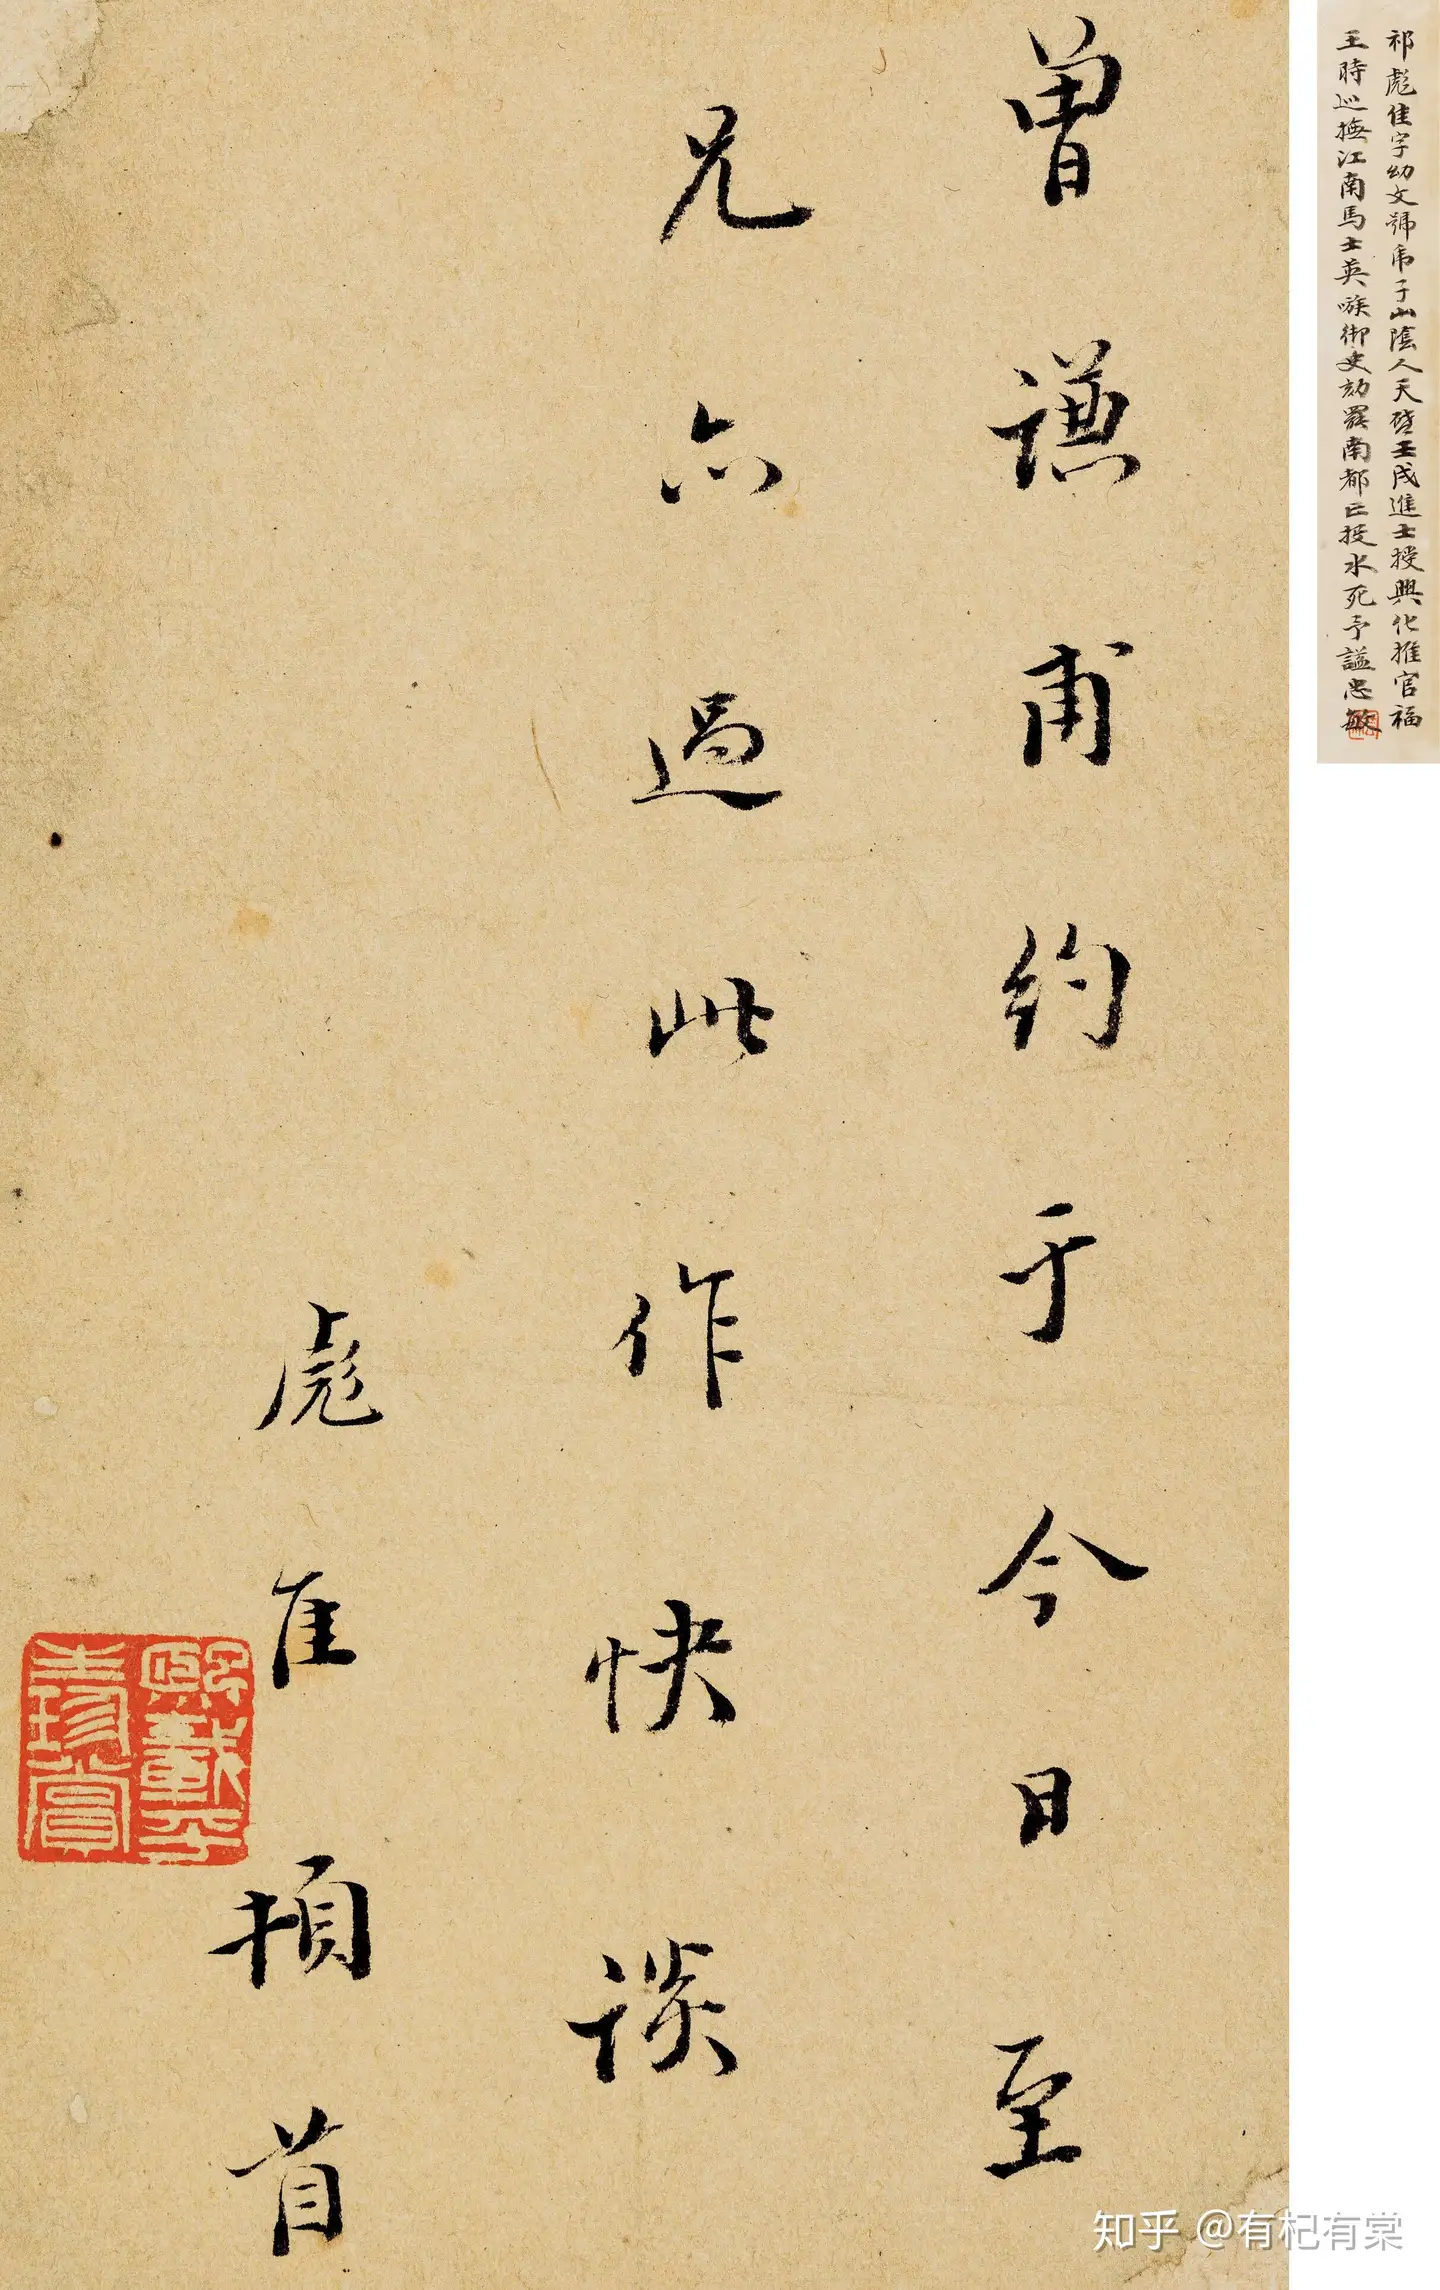 曾謙甫約于今日至
兄亦過此作快談
彪佳頓首
祁彪佳字幼文號虎子山陰人天啓壬戌進士授興化推官福
王時巡撫江南馬士英嗾御史劾罷南都亡投水死予謚忠敏
熙載平
生珍賞
知乎 @有杞有棠